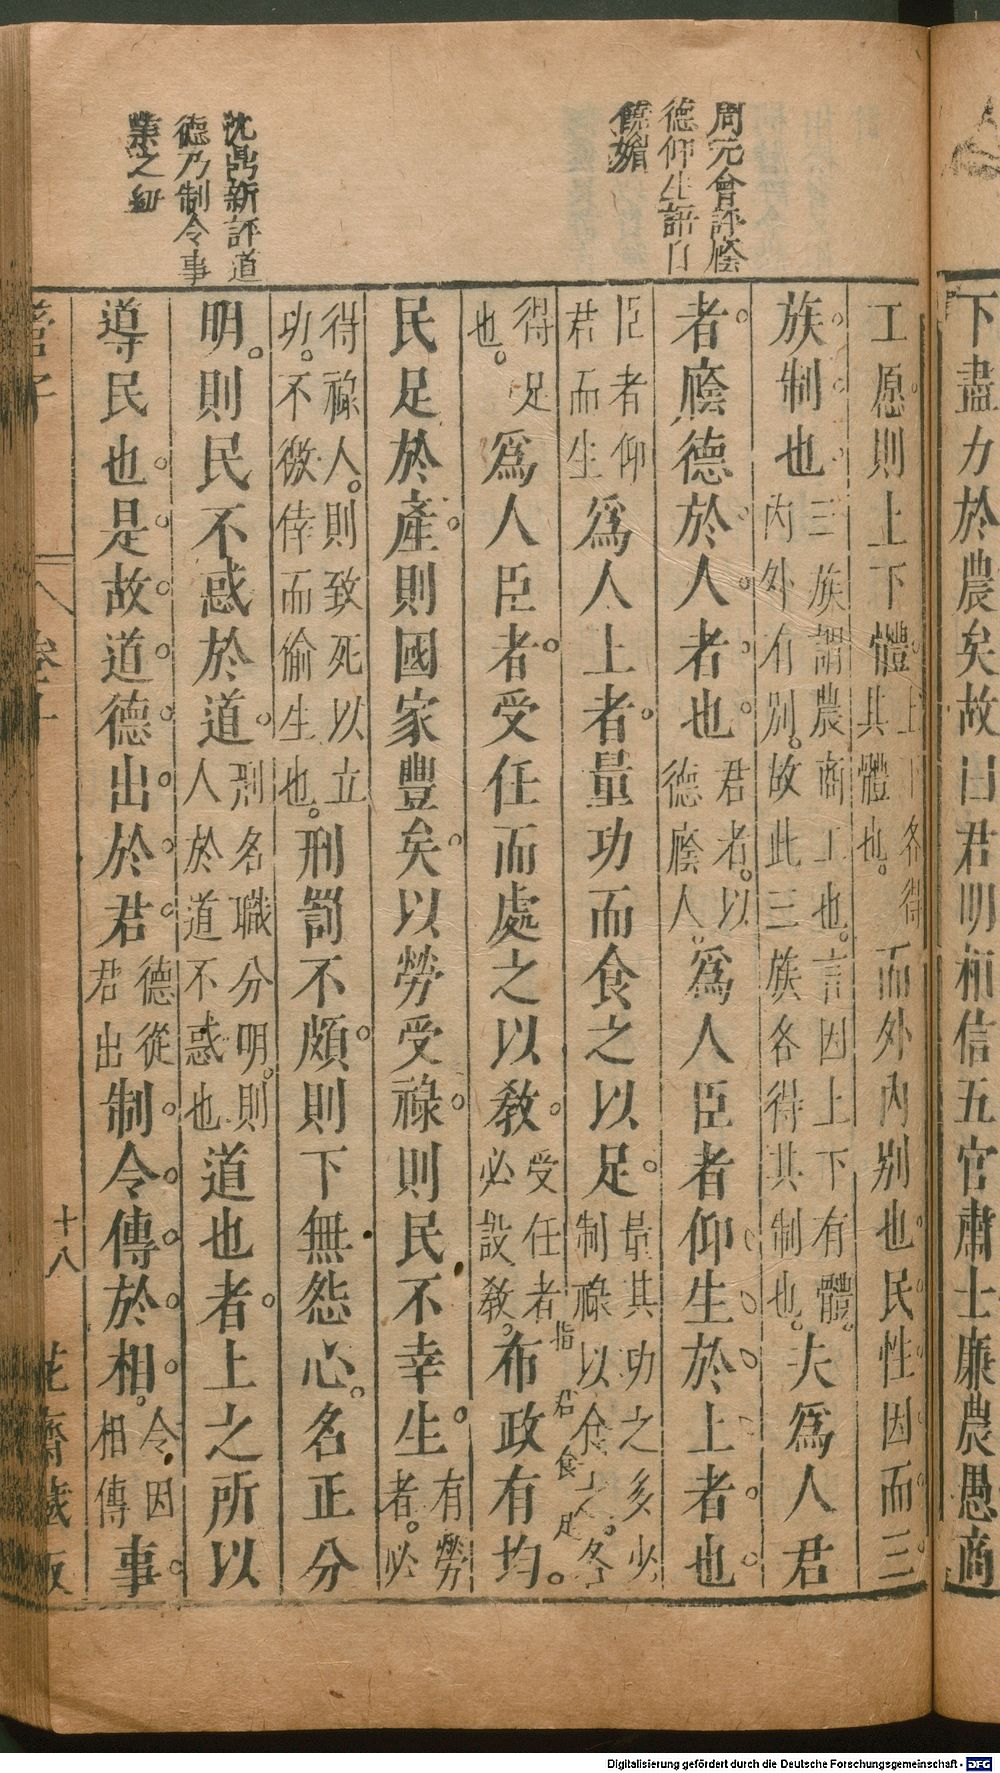 下盡力於農矣故曰君明相信五官肅士廉農愚商
周元會評廕
德仰生語自
饒媚
沈鼎新評道
德乃制令事
業之紐
工愿則上下體上下各得其體也。而外內別也民性因而三
族制也三族謂農商工也。言因上下有體。內外有別。故此三族各得其制也。夫爲人君
者廕德於人者也君者。以德廕人。爲人臣者仰生於上者也
臣者仰君而生爲人上者量功而食之以足。量其功之多少制祿以食之。各
得足也。爲人臣者受任而處之以教。受任者必設教。布政有均。
指君食足
民足於產。則國家豐矣。以勞受祿。則民不幸生。有勞者。必
得祿人。則致死以立功。不徼倖而偷生也。刑罰不頗。則下無怨心。名正分
明。則民不惑於道。刑名職分明。則人於道不惑也道也者。上之所以
導民也。是故道德出於君。德從君出制令傳於相。令因相傳事。
管子
卷十
十八
花齋藏版
Digitalisierung gefördert durch die Deutsche Forschungsgemeinschaft - DFG